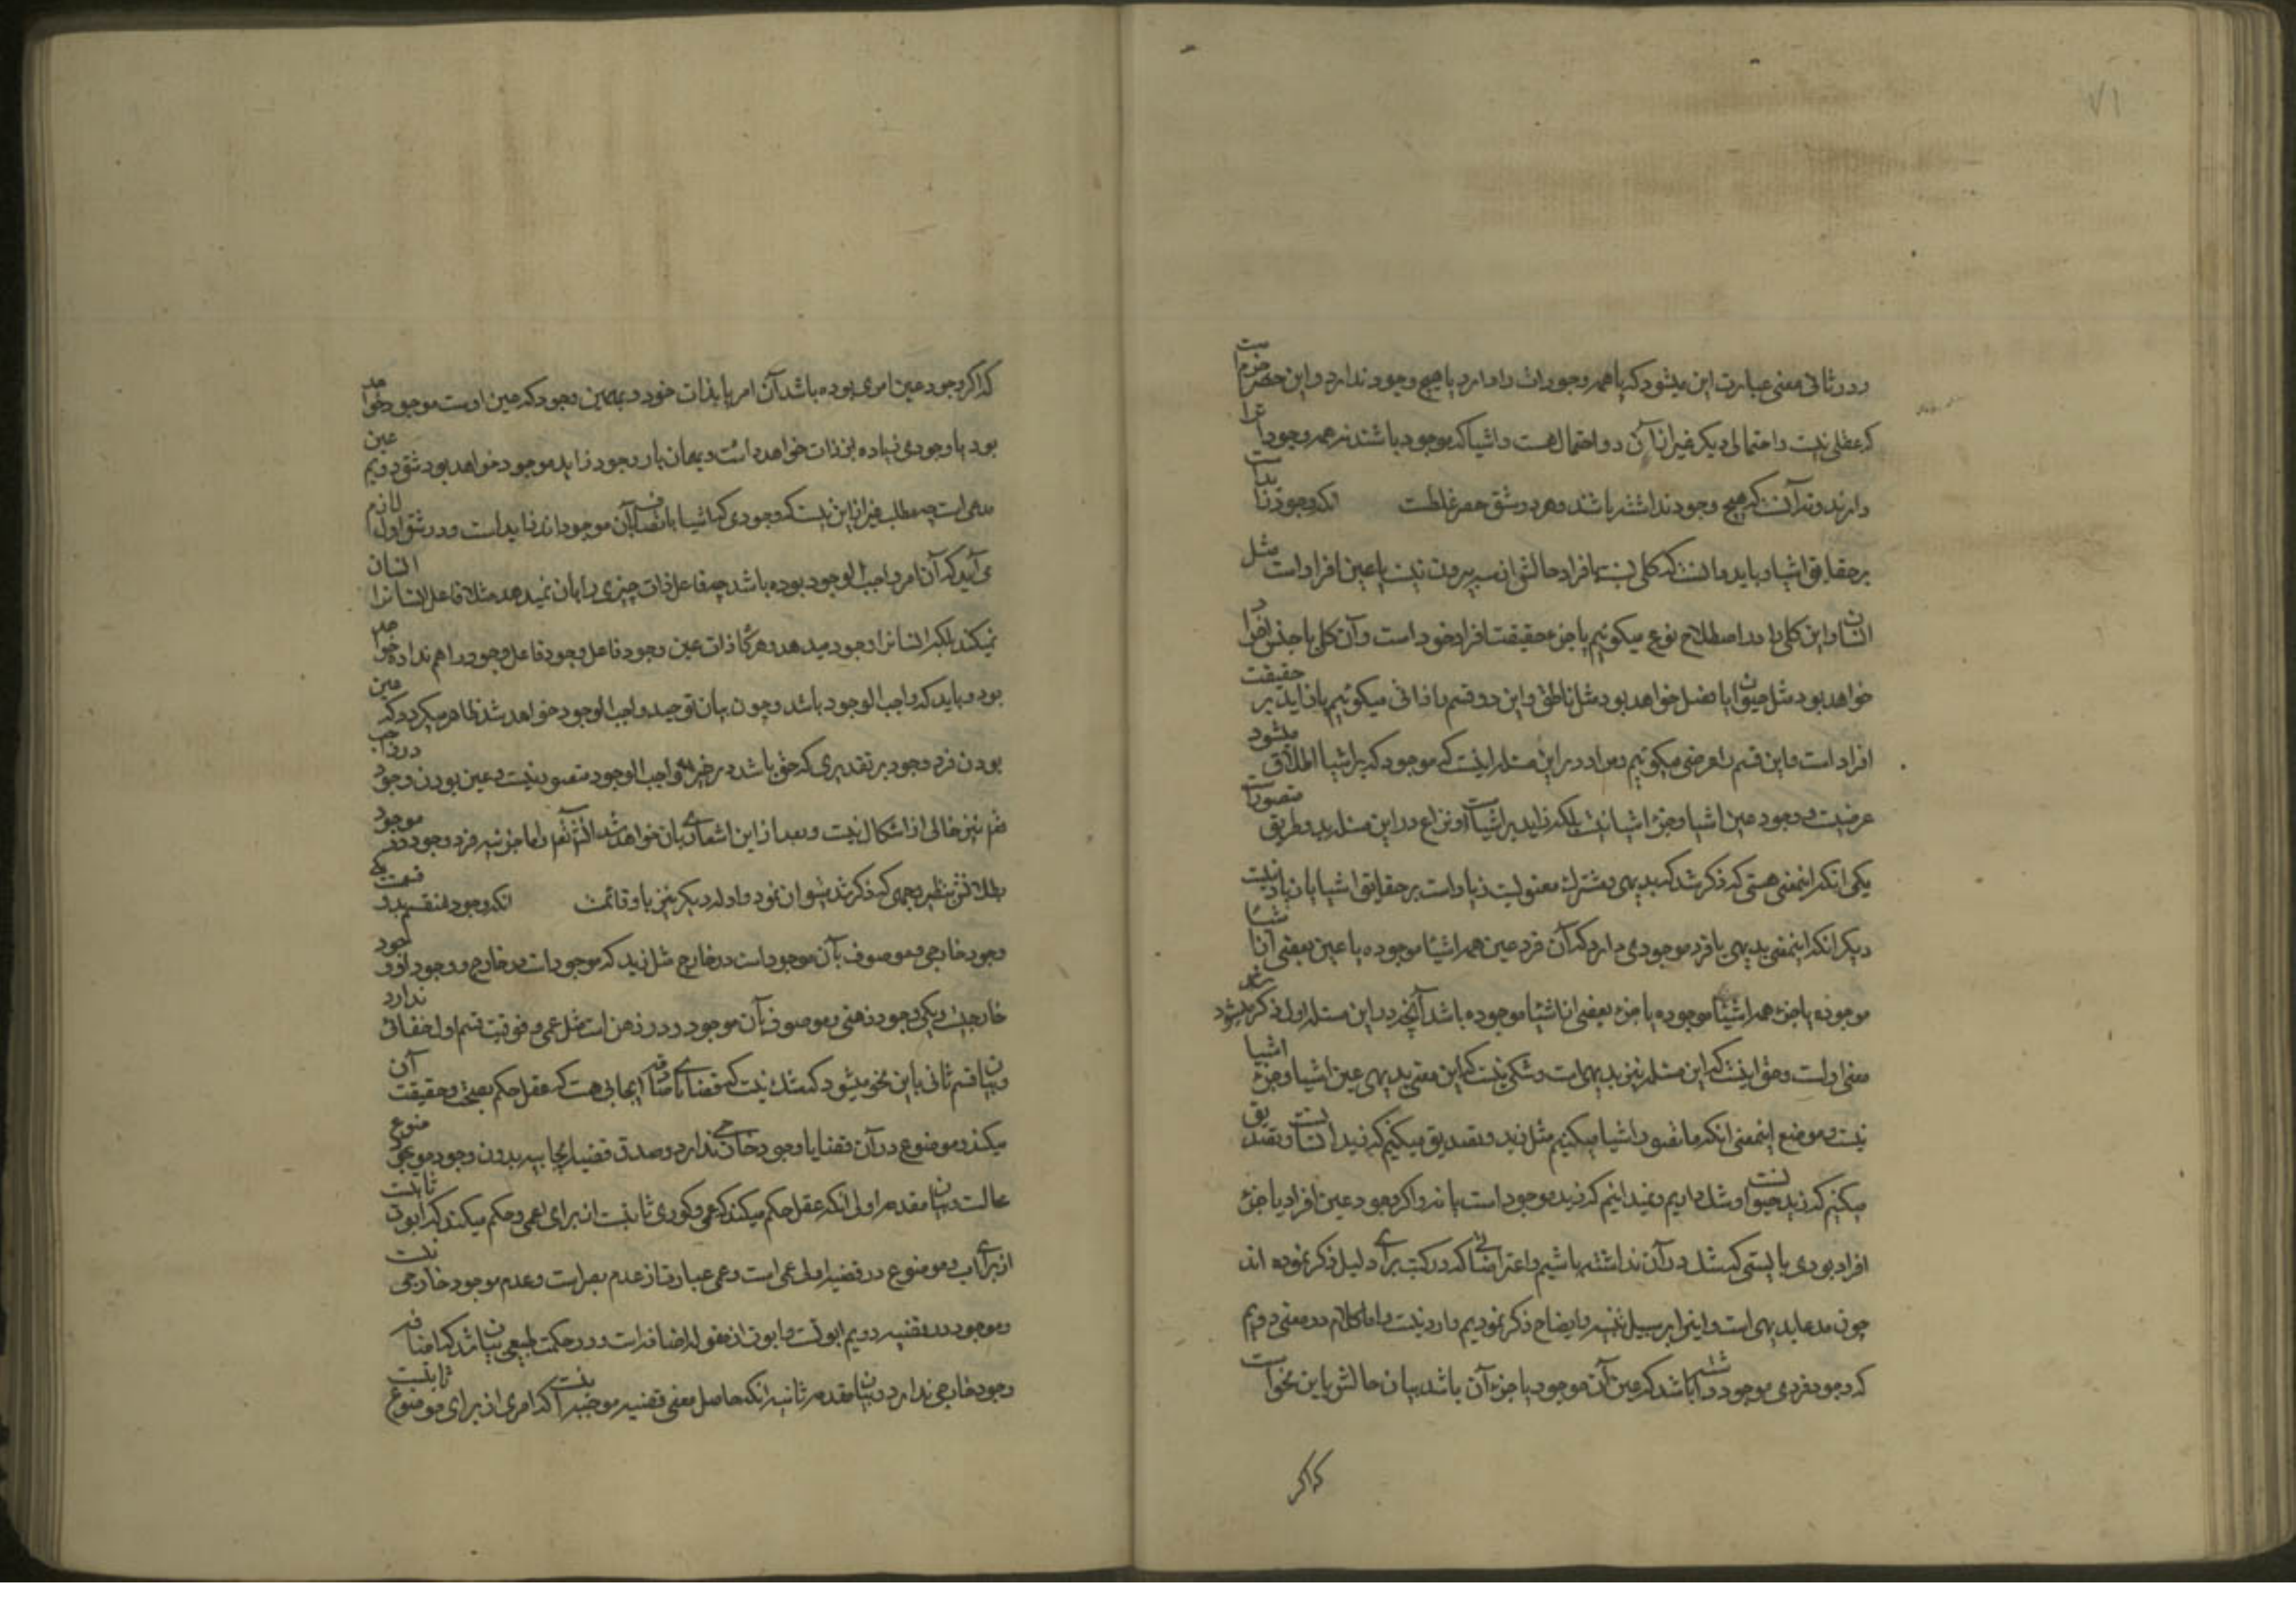 ۷۱
و در ثانی معنی عبارت این میشود که یا همه وجودات را دارد یا هیچ وجود ندارد و این حصر
که عقلی نیست و احتمالی دیگر غیر از آن دو احتمال هست و اشیا که موجود باشند نه همه وجود را
دارند و نه آنست که هیچ وجود نداشته باشند و هر دو شق حصر غلطست
بر حقایق اشیا و باید دانست که کلی نسبت بافراد حالش از سه بیرون نیست یا عین افراد است مثل
انسان و این کلی را در اصطلاح نوع میگوئیم یا جزء حقیقت افراد خود است و آن کلی یا جنس افراد
خواهد بود مثل حیوان یا فصل خواهد بود مثل ناطق و این دو قسم را ذاتی میگوئیم یا زاید بر حقیقت
افراد است و این قسم را عرضی میگوئیم و مراد در این مسئله اینست که موجود که بر اشیا اطلاق میشود
عرضیست و وجود عین اشیا و جزء اشیا نیست بلکه زاید بر اشیاست و نزاع در این مسئله بدو طریق متصور است
یکی آنکه اینمعنی هستی که ذکر شد که بدیهی و مشترک معنویست زیاد است بر حقایق اشیا یا زیاد نیست
دیگر آنکه اینمعنی بدیهی یا فرد موجودی دارد که آن فرد عین همه اشیاء موجوده یا عین بعضی از اشیاء
موجوده یا جزء همه اشیاء موجوده یا جزء بعضی از اشیاء موجوده باشد آنچه در این مسئله اول ذکر میشود
معنی اولست و حق اینست که این مسئله نیز بدیهی است و شکی نیست که این معنی بدیهی عین اشیا و جزء اشیا
نیست و موضع اینمعنی آنکه ما تصور اشیا میکنیم مثل زید و تصدیق میکنیم که زید انسانست و تصدیق
میکنیم که زید حیوانست و شک داریم و نمیدانیم که زید موجود است یا نه و اگر وجود عین افراد یا جزء
افراد بودی بایستی که شک در آن نداشته باشیم و اعتراضاتی که در کتب برای دلیل ذکر نموده اند
چون مدعا بدیهی است و اینرا بر سبیل تنبیه و ایضاح ذکر نمودیم وارد نیست و اما کلام در معنی دویم
که وجود فردی موجود داشته باشد که عین آن موجود یا جزء آن باشد بیان حالش باین نحو است
که اگر
که اگر وجود عین امری بوده باشد آن امر یا بذات خود و بهمین وجود که عین اوست موجود خواهد
بود یا وجودی زیاده بر ذات خواهد داشت و بهمان بار وجود زاید موجود خواهد بود شق دویم عین
مدعی است چه مطلب غیر از این نیست که وجودی که اشیا باتصاف بآن موجوداند زاید است و در شق اول لازم
می آید که آن امر واجب الوجود بوده باشد چه فاعل ذات چیزی را بآن نمیدهد مثلا فاعل انسانرا انسان
نمیکند بلکه انسانرا وجود میدهد و هرگاه ذات عین وجود فاعل وجود فاعل وجود را هم نداده خواهد
بود و باید که واجب الوجود باشد و چون بیان توحید واجب الوجود خواهد شد ظاهر میگردد که عین
بودن فرد وجود بر تقدیری که حق باشد در غیر واجب الوجود متصور نیست و عین بودن وجود در واجب
هم نیز خالی از اشکال نیست و بعد از این اشعاری بآن خواهد شد انشاء الله تعالی و اما جزئیه فرد وجود در موجود
بطلانش بنظیر وجهی که ذکر شد میتوان نمود و ادله دیگر نیز باو قائمست
وجود خارجی و موصوف بآن موجود است در خارج مثل زید که موجود است در خارج و وجود او وجود
خارجیست و یکی وجود ذهنی و موصوف بآن موجود در ذهن است مثل عمی و فوقیت قسم اول خفائی ندارد
و بیان قسم ثانی باین نحو میشود که شک نیست که قضایای صادقه ایجابی هست که عقل حکم بصحت و حقیقت آن
میکند و موضوع در آن قضایا وجود خارجی ندارد و صدق قضیه ایجابیه بدون وجود موضوع
محالست و بیان مقدمه اولی آنکه عقل حکم میکند که عمی و کوری ثابتست از برای اعمی و حکم میکند که ابوت ثابتست
از برای اب و موضوع در قضیه اولی عمی است و عمی عبارت از عدم بصر است و عدم موجود خارجی نیست
و موجود در قضیه دویم ابوتست و ابوت از مقوله اضافه است و در حکمت طبیعی بیان شد که اضافه
وجود خارجی ندارد و بیان مقدمه ثانیه آنکه حاصل معنی قضیه موجبه آنست که امری از برای موضوع ثابتست